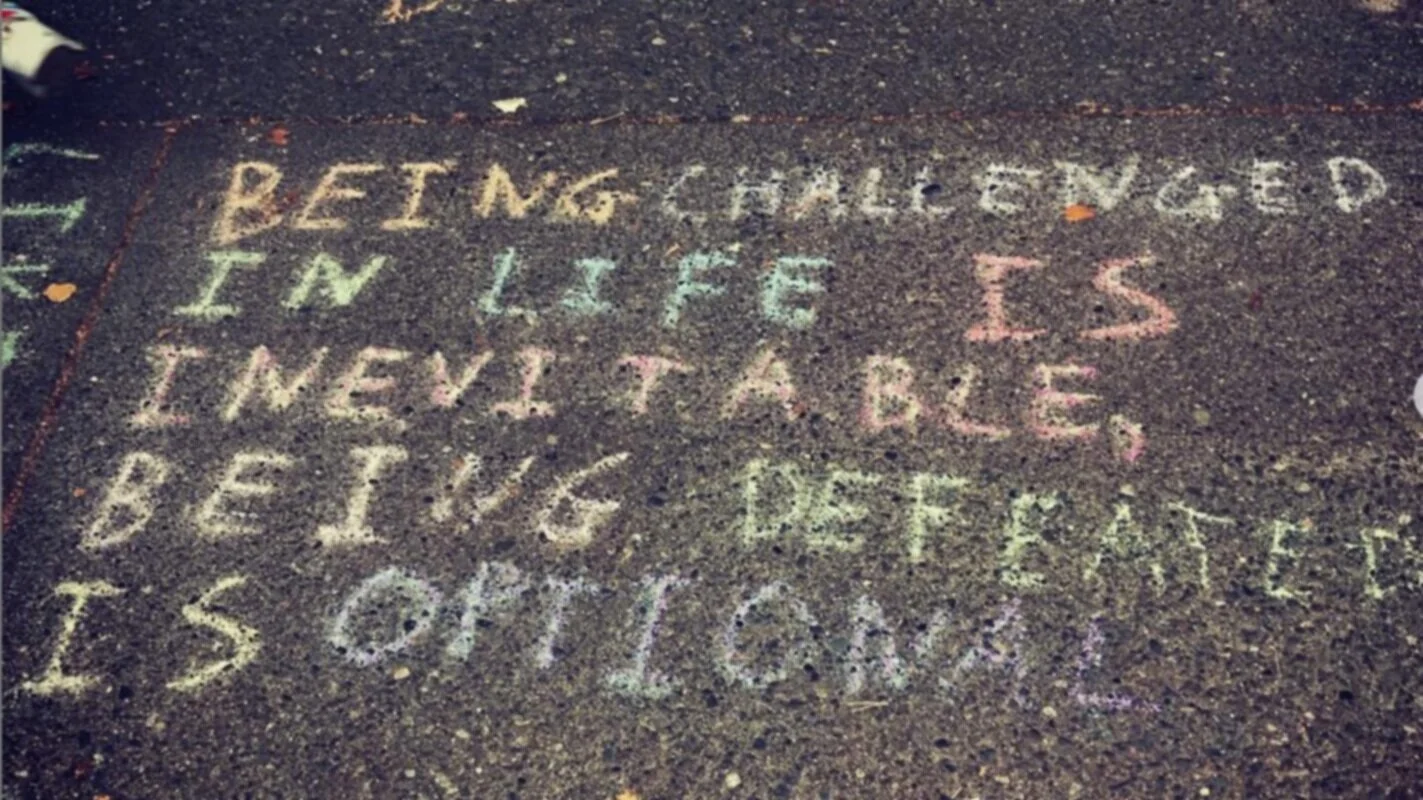 BEING CHALLENGED
IN LIFE IS
INEVITABLE,
BEING DEFEATED
IS OPTIONAL